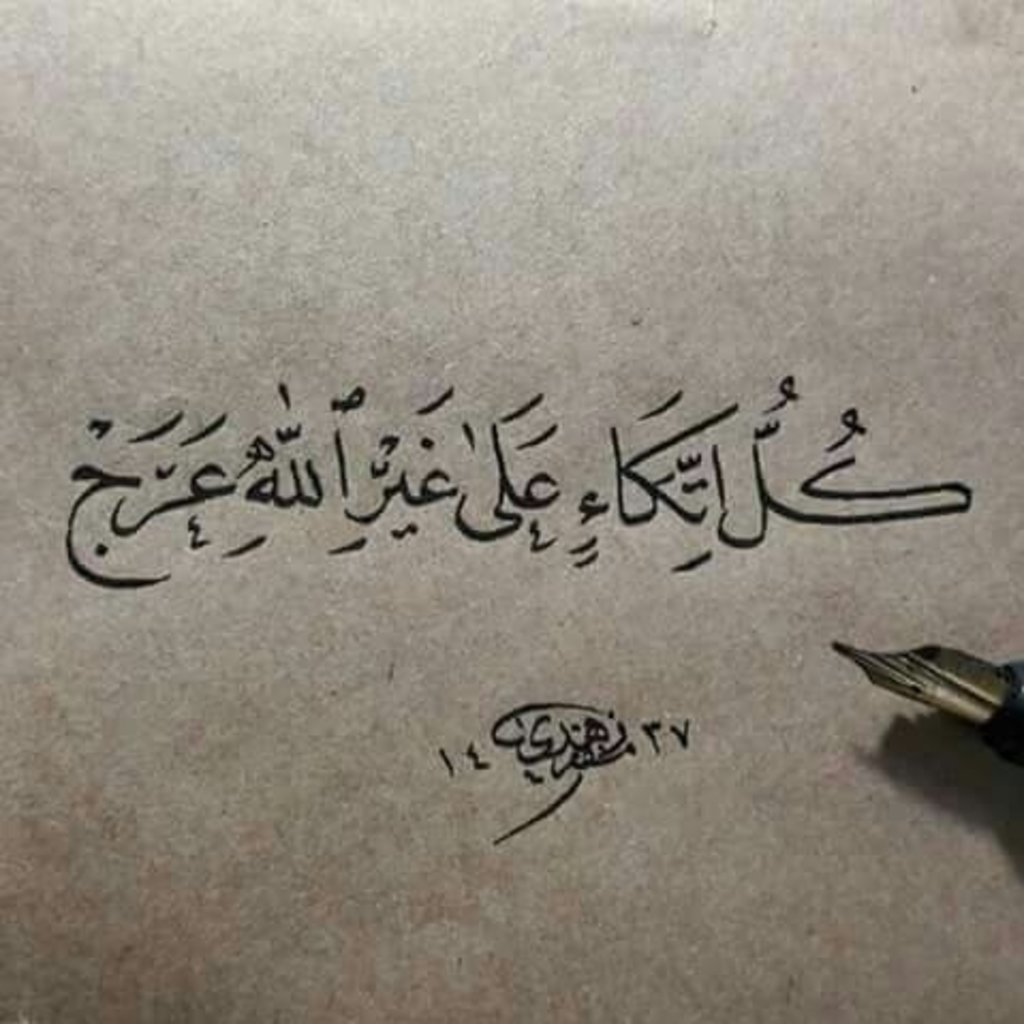 كُلُّ اتِّكَاءٍ عَلَىٰ غَيْرِ ٱللَّهِ عَرَجْ
١٤٣٧